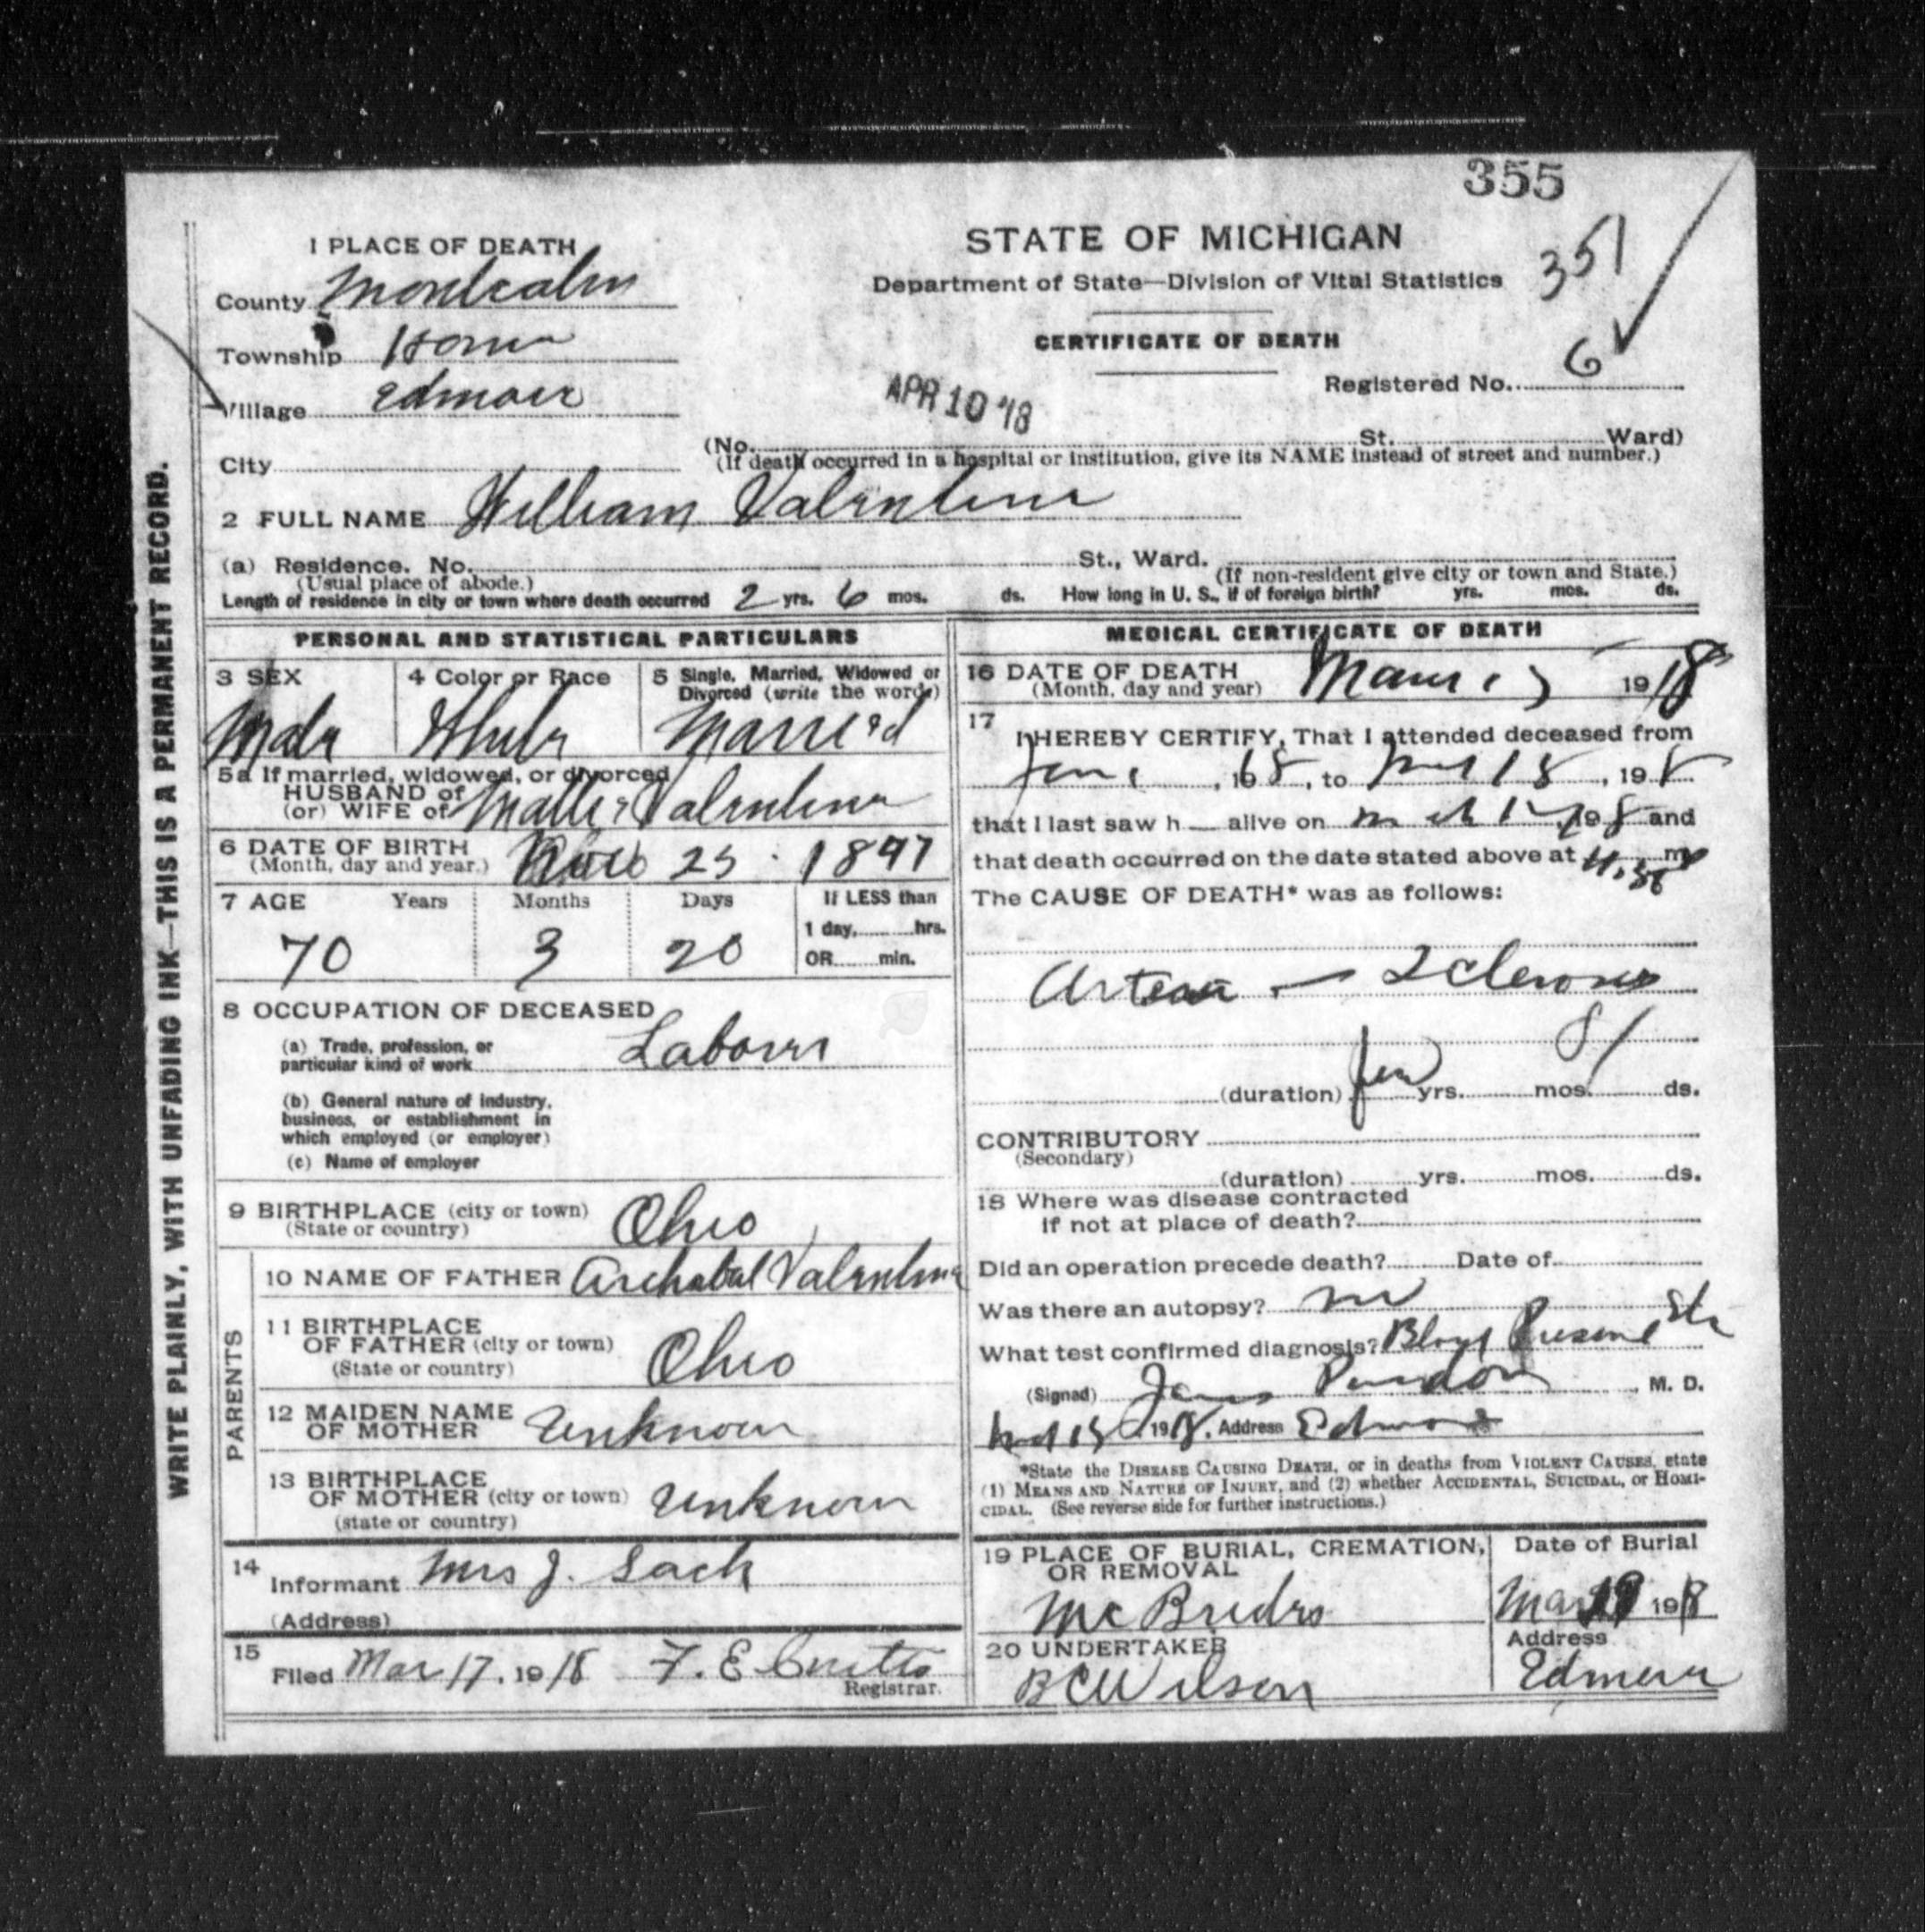 355
351
1 PLACE OF DEATH
STATE OF MICHIGAN
County Montcalm
Department of State—Division of Vital Statistics
Township Home
CERTIFICATE OF DEATH
Registered No. 6
Village Edmore
APR 10 '18
(No. St. Ward)
City
(If death occurred in a hospital or institution, give its NAME instead of street and number.)
2 FULL NAME William Valentine
(a) Residence. No. St., Ward.
(Usual place of abode.) (If non-resident give city or town and State.)
Length of residence in city or town where death occurred 2 yrs. 6 mos. ds. How long in U. S., if of foreign birth? yrs. mos. ds.
PERSONAL AND STATISTICAL PARTICULARS
3 SEX 4 Color or Race 5 Single, Married, Widowed or
Divorced (write the word)
Male White Married
5a If married, widowed, or divorced
HUSBAND of
(or) WIFE of Mattie Valentine
6 DATE OF BIRTH
(Month, day and year.) Nov 25 1897
7 AGE Years Months Days If LESS than
1 day, hrs.
70 3 20 OR min.
8 OCCUPATION OF DECEASED
(a) Trade, profession, or
particular kind of work Laborer
(b) General nature of industry,
business, or establishment in
which employed (or employer)
(c) Name of employer
9 BIRTHPLACE (city or town)
(State or country) Ohio
PARENTS
10 NAME OF FATHER Archabal Valentine
11 BIRTHPLACE
OF FATHER (city or town)
(State or country) Ohio
12 MAIDEN NAME
OF MOTHER Unknown
13 BIRTHPLACE
OF MOTHER (city or town) Unknown
(state or country)
14
Informant Mrs J. Sack
(Address)
15
Filed Mar 17, 1918 F. E.
Registrar.
MEDICAL CERTIFICATE OF DEATH
16 DATE OF DEATH
(Month, day and year) 1918
17
I HEREBY CERTIFY, That I attended deceased from
, to , 19
that I last saw h— alive on and
that death occurred on the date stated above at m
The CAUSE OF DEATH* was as follows:
Arterio — Sclerosis
81
(duration) few yrs. mos. ds.
CONTRIBUTORY
(Secondary)
(duration) yrs. mos. ds.
18 Where was disease contracted
if not at place of death?
Did an operation precede death? Date of
Was there an autopsy? no
What test confirmed diagnosis? Blood Pressure
(Signed) James Purdon, M. D.
1918. Address Edmore
*State the DISEASE CAUSING DEATH, or in deaths from VIOLENT CAUSES, state
(1) MEANS AND NATURE OF INJURY, and (2) whether ACCIDENTAL, SUICIDAL, or HOMI-
CIDAL. (See reverse side for further instructions.)
19 PLACE OF BURIAL, CREMATION, Date of Burial
OR REMOVAL
McBrides Mar 1918
20 UNDERTAKER Address
B C Wilson Edmore
WRITE PLAINLY, WITH UNFADING INK—THIS IS A PERMANENT RECORD.